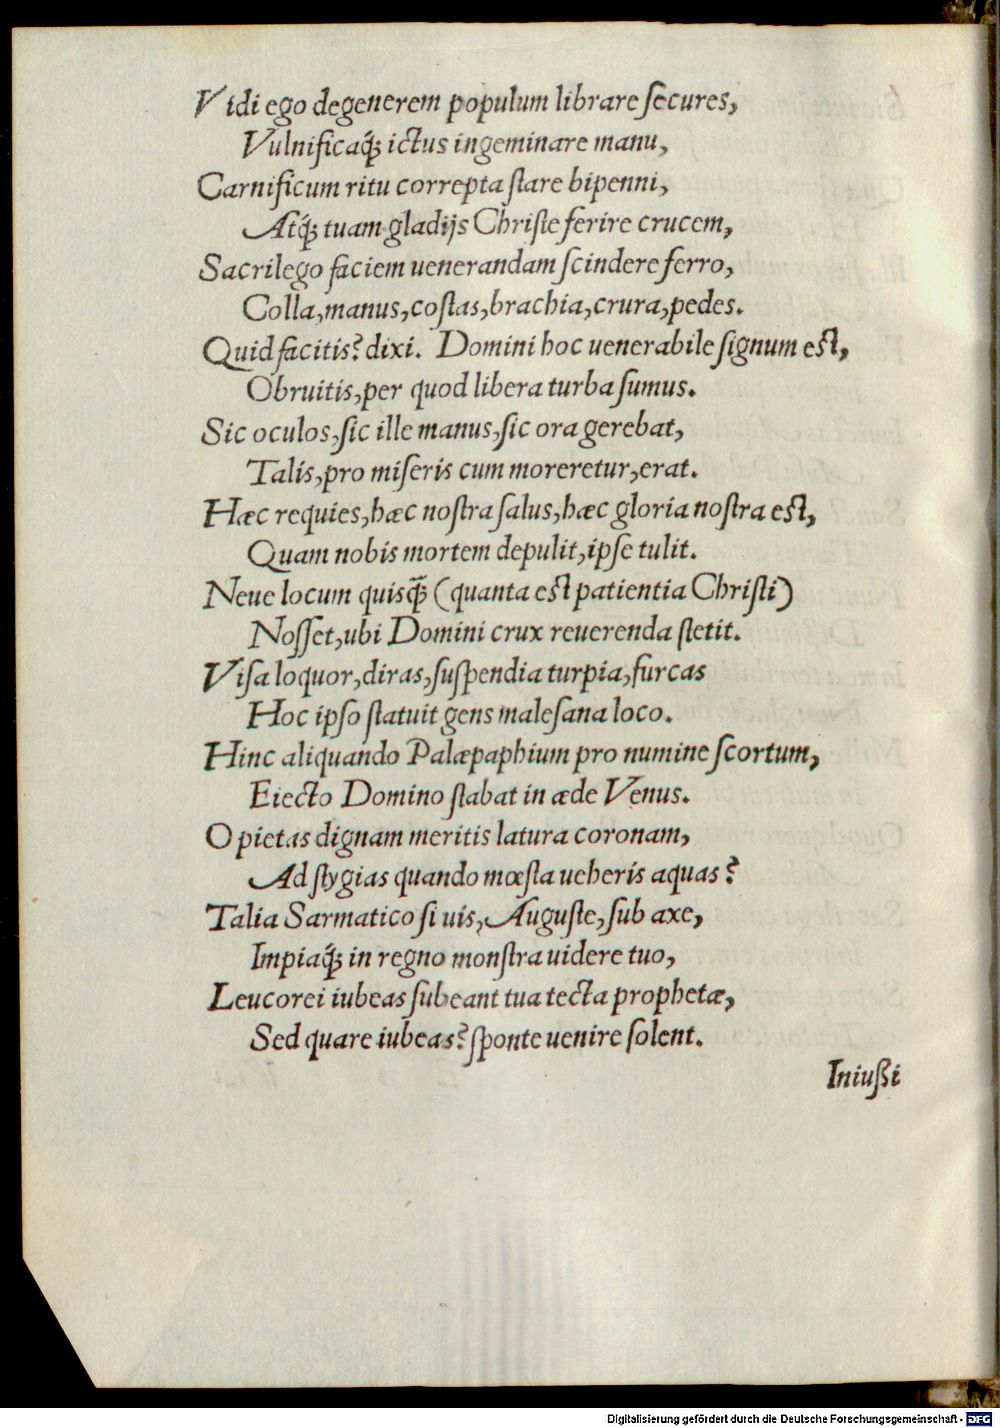 Vidi ego degenerem populum librare ſecures,
Vulnificaq́ꝫ ictus ingeminare manu,
Carnificum ritu correpta ſtare bipenni,
Atq́ꝫ tuam gladijs Chriſte ferire crucem,
Sacrilego faciem uenerandam ſcindere ferro,
Colla, manus, coſtas, brachia, crura, pedes.
Quid facitis? dixi. Domini hoc uenerabile ſignum eſt,
Obruitis, per quod libera turba ſumus.
Sic oculos, ſic ille manus, ſic ora gerebat,
Talis, pro miſeris cum moreretur, erat.
Hæc requies, hæc noſtra ſalus, hæc gloria noſtra eſt,
Quam nobis mortem depulit, ipſe tulit.
Neue locum quisq̃ꝫ (quanta eſt patientia Chriſti)
Noſſet, ubi Domini crux reuerenda ſtetit.
Viſa loquor, diras, ſuſpendia turpia, furcas
Hoc ipſo ſtatuit gens maleſana loco.
Hinc aliquando Palæpaphium pro numine ſcortum,
Eiecto Domino ſtabat in æde Venus.
O pietas dignam meritis latura coronam,
Ad ſtygias quando mœſta ueheris aquas?
Talia Sarmatico ſi uis, Auguſte, ſub axe,
Impiaq́ꝫ in regno monſtra uidere tuo,
Leucorei iubeas ſubeant tua tecta prophetæ,
Sed quare iubeas? ſponte uenire ſolent.
Iniußi
Digitalisierung gefördert durch die Deutsche Forschungsgemeinschaft - DFG